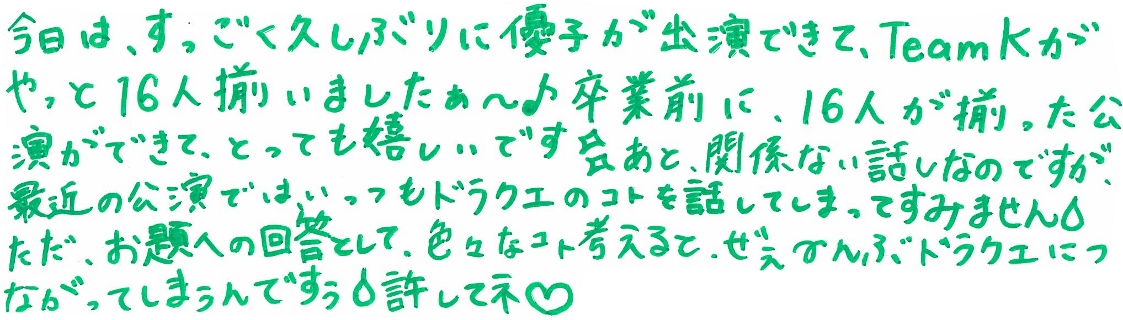 今日は、すっごく久しぶりに優子が出演できて、TeamKが
やっと16人揃いましたぁ〜♪卒業前に、16人が揃った公
演ができて、とっても嬉しいです☆あと、関係ない話しなのですが、
最近の公演では、いっつもドラクエのコトを話してしまってすみません💧
ただ、お題への回答として、色々なコト考えると、ぜぇーんぶドラクエにつ
ながってしまうんですぅ💧許してネ♡